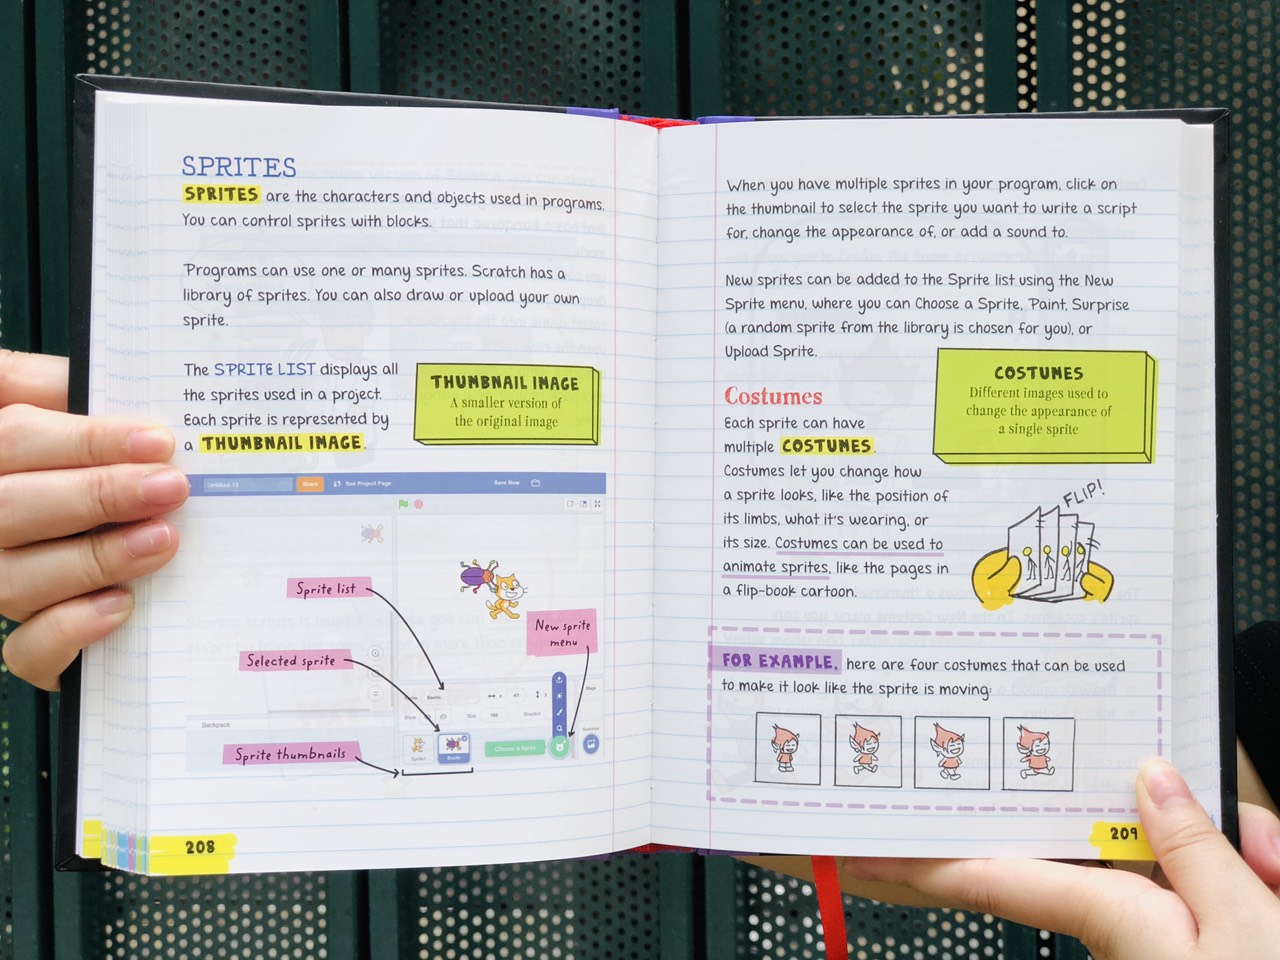 SPRITES
SPRITES are the characters and objects used in programs.
You can control sprites with blocks.
Programs can use one or many sprites. Scratch has a
library of sprites. You can also draw or upload your own
sprite.
The SPRITE LIST displays all
the sprites used in a project.
Each sprite is represented by
a THUMBNAIL IMAGE.
THUMBNAIL IMAGE
A smaller version of
the original image
Untitled-13
Share
See Project Page
Save Now
Sprite list
New sprite
menu
Selected sprite
Sprite thumbnails
Backpack
Beetle
Show
Size
Direction
Stage
Sprite1
Beetle
Choose a Sprite
Backdrops
208
When you have multiple sprites in your program, click on
the thumbnail to select the sprite you want to write a script
for, change the appearance of, or add a sound to.
New sprites can be added to the Sprite list using the New
Sprite menu, where you can Choose a Sprite, Paint, Surprise
(a random sprite from the library is chosen for you), or
Upload Sprite.
Costumes
Each sprite can have
multiple COSTUMES.
Costumes let you change how
a sprite looks, like the position of
its limbs, what it's wearing, or
its size. Costumes can be used to
animate sprites, like the pages in
a flip-book cartoon.
COSTUMES
Different images used to
change the appearance of
a single sprite
FLIP!
FOR EXAMPLE, here are four costumes that can be used
to make it look like the sprite is moving:
209